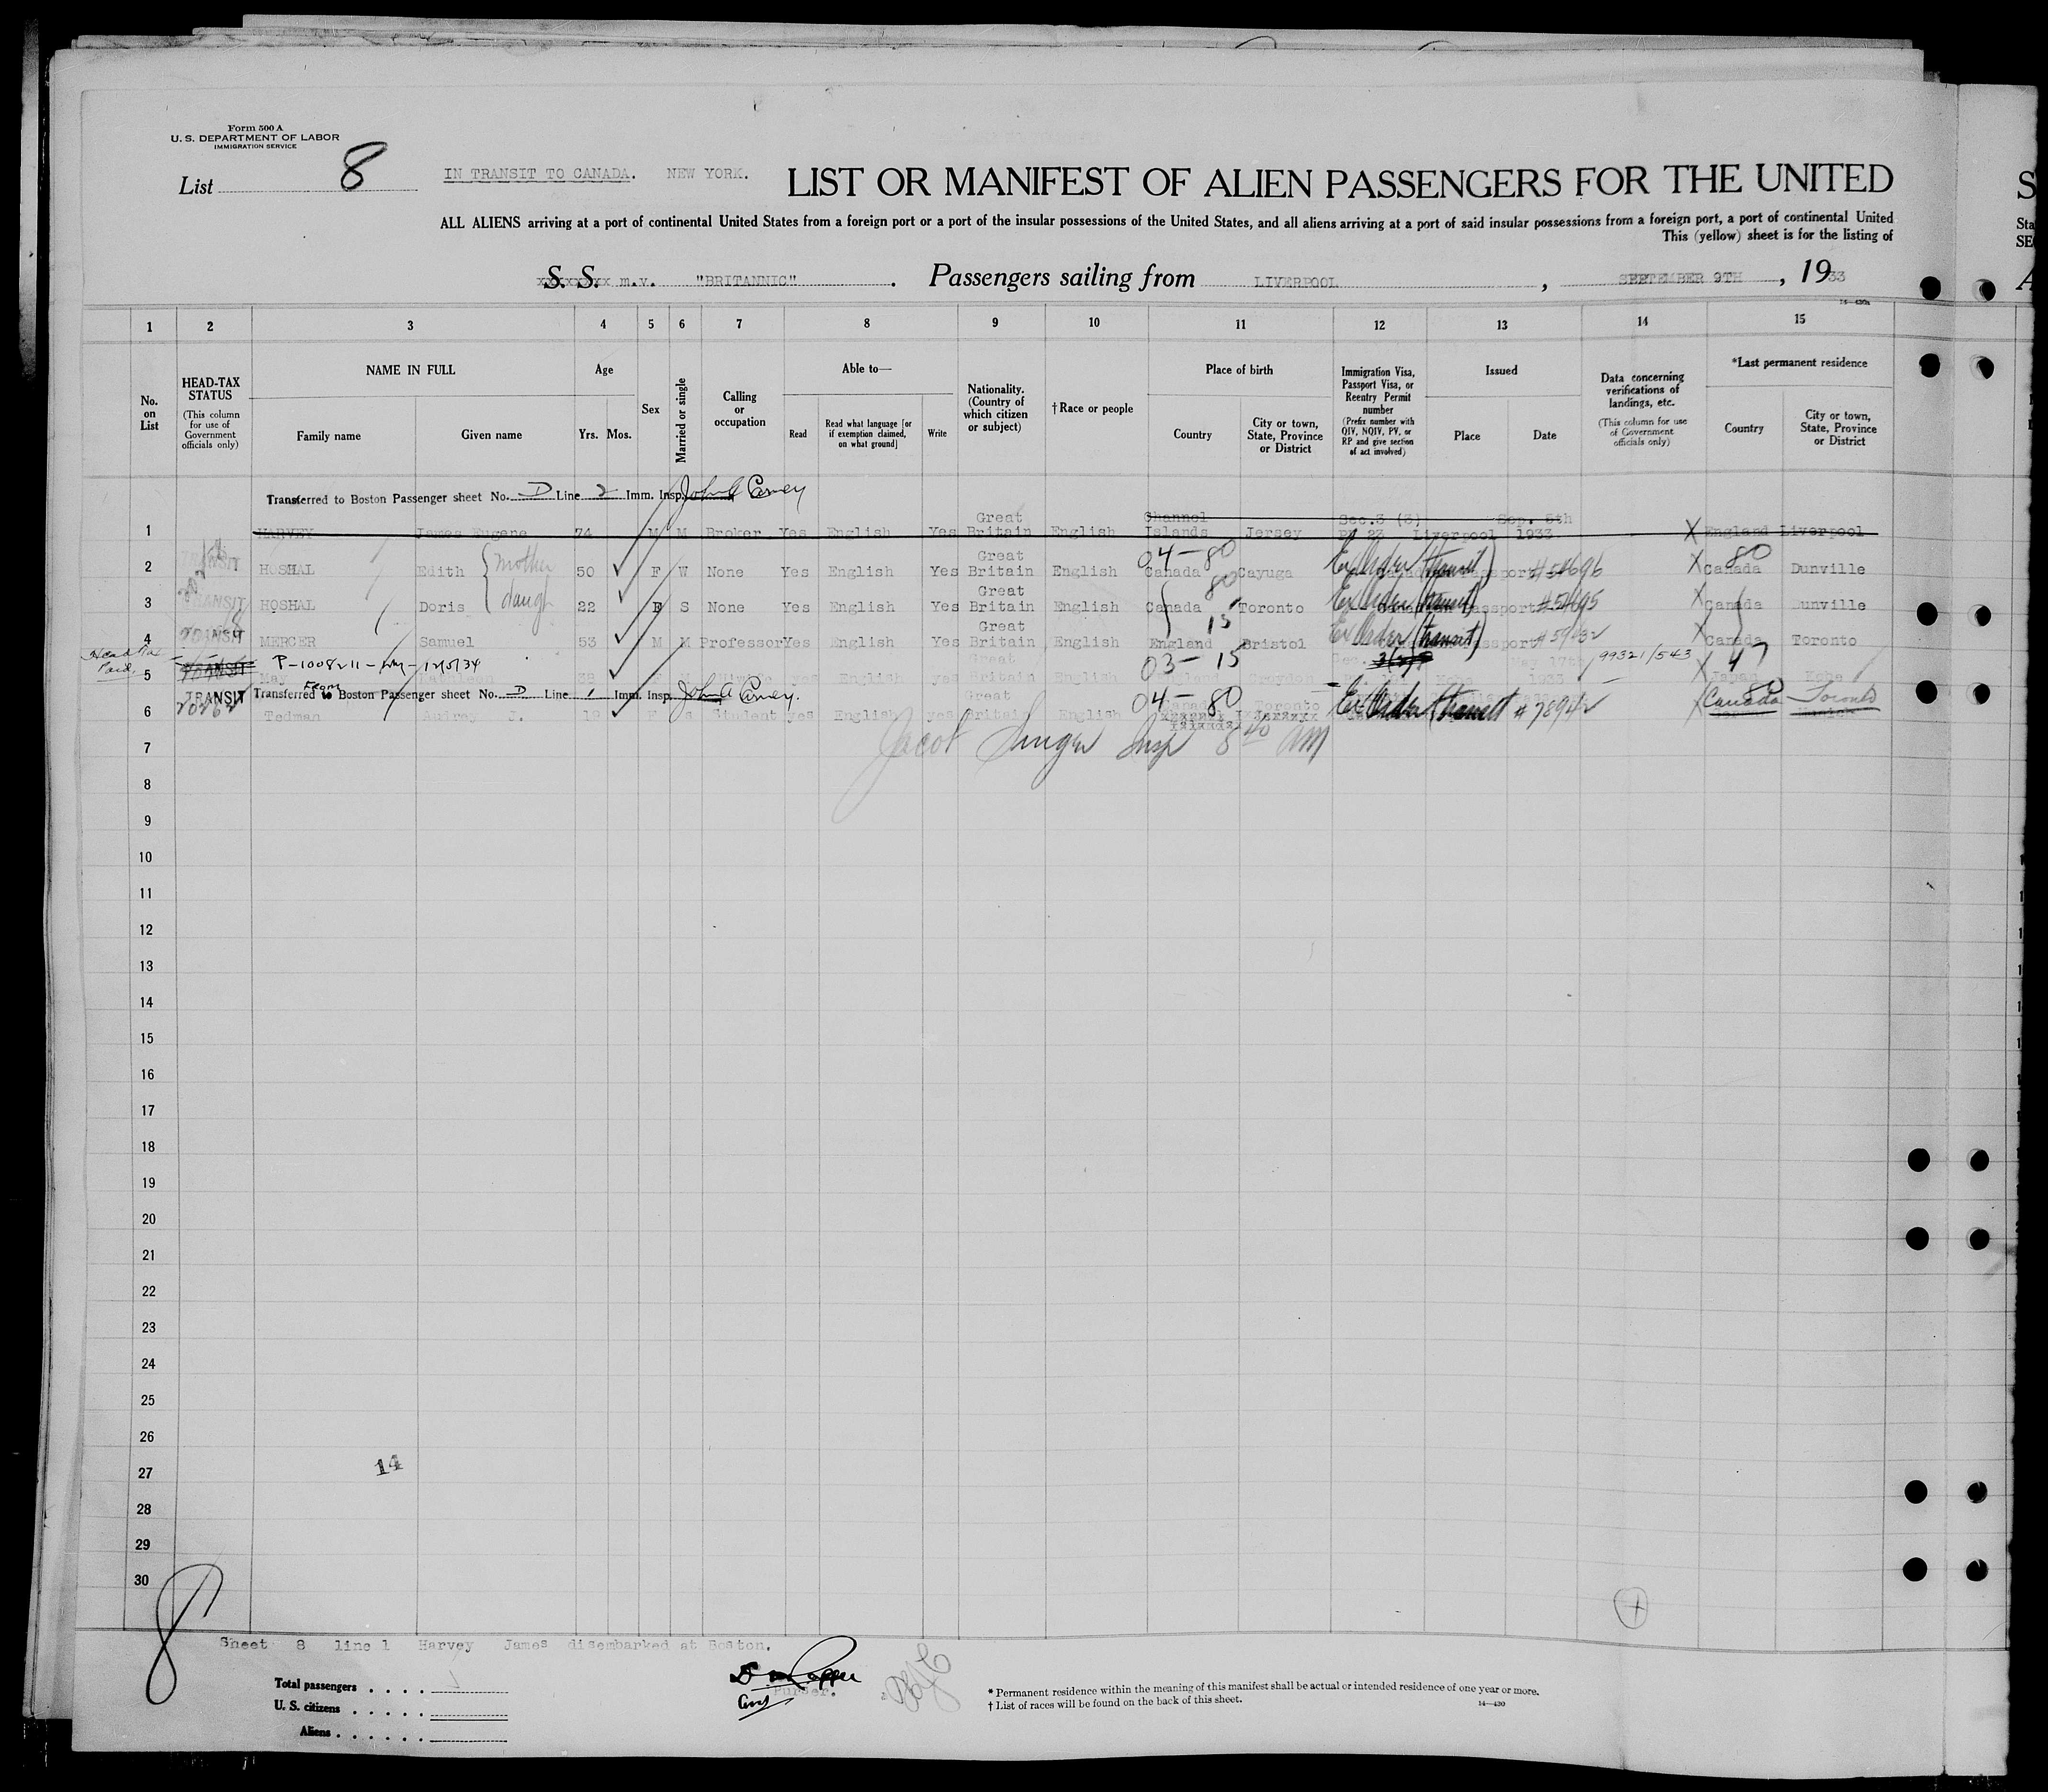 Form 500 A
U. S. DEPARTMENT OF LABOR
IMMIGRATION SERVICE
List 8
IN TRANSIT TO CANADA. NEW YORK.
LIST OR MANIFEST OF ALIEN PASSENGERS FOR THE UNITED
ALL ALIENS arriving at a port of continental United States from a foreign port or a port of the insular possessions of the United States, and all aliens arriving at a port of said insular possessions from a foreign port, a port of continental United
This (yellow) sheet is for the listing of
S. S. m.v. "BRITANNIC". Passengers sailing from LIVERPOOL, SEPTEMBER 9TH, 1933
1 2 3 4 5 6 7 8 9 10 11 12 13 14 15
No. on List
HEAD-TAX STATUS (This column for use of Government officials only)
NAME IN FULL
Family name Given name
Age
Yrs. Mos.
Sex
Married or single
Calling or occupation
Able to—
Read
Read what language [or if exemption claimed, on what ground]
Write
Nationality. (Country of which citizen or subject)
†Race or people
Place of birth
Country
City or town, State, Province or District
Immigration Visa, Passport Visa, or Reentry Permit number (Prefix number with QIV, NQIV, PV, or RP and give section of act involved)
Issued
Place Date
Data concerning verifications of landings, etc. (This column for use of Government officials only)
*Last permanent residence
Country
City or town, State, Province or District
Transferred to Boston Passenger sheet No. D Line 2 Imm. Insp.
1 HARVEY James Eugene 74 M M Broker Yes English Yes Great Britain English Channel Islands Jersey Sec.3 (3) PV 23 Liverpool Sep. 5th 1933 X England Liverpool
2 TRANSIT HOSHAL Edith mother 50 F W None Yes English Yes Great Britain English 04-80 Canada Cayuga Ex Order (transit) Passport #54696 X 80 Canada Dunville
3 TRANSIT HOSHAL Doris daugh 22 F S None Yes English Yes Great Britain English 80 Canada Toronto Ex Order (transit) Passport #54695 X Canada Dunville
4 TRANSIT MERCER Samuel 53 M M Professor Yes English Yes Great Britain English 15 England Bristol Ex Order (transit) Passport X Canada Toronto
Head Tax Paid
5 TRANSIT P-1008211 May Kathleen 38 F yes English yes Great Britain English 03-15 England Croydon Kobe May 17th 1933 99321/543 X 47 Japan Kobe
Transferred From to Boston Passenger sheet No. D Line 1 Imm. Insp.
6 TRANSIT Tedman Audrey J. 19 F S Student yes English yes Great Britain English 04-80 Canada Toronto Ex Order (transit) X 80 Canada Toronto
7 Jacob Singer Insp
8
9
10
11
12
13
14
15
16
17
18
19
20
21
22
23
24
25
26
27 14
28
29
30
8
Sheet 8 line 1 Harvey James disembarked at Boston.
Total passengers
U. S. citizens
Aliens
Purser.
* Permanent residence within the meaning of this manifest shall be actual or intended residence of one year or more.
† List of races will be found on the back of this sheet.
14—430